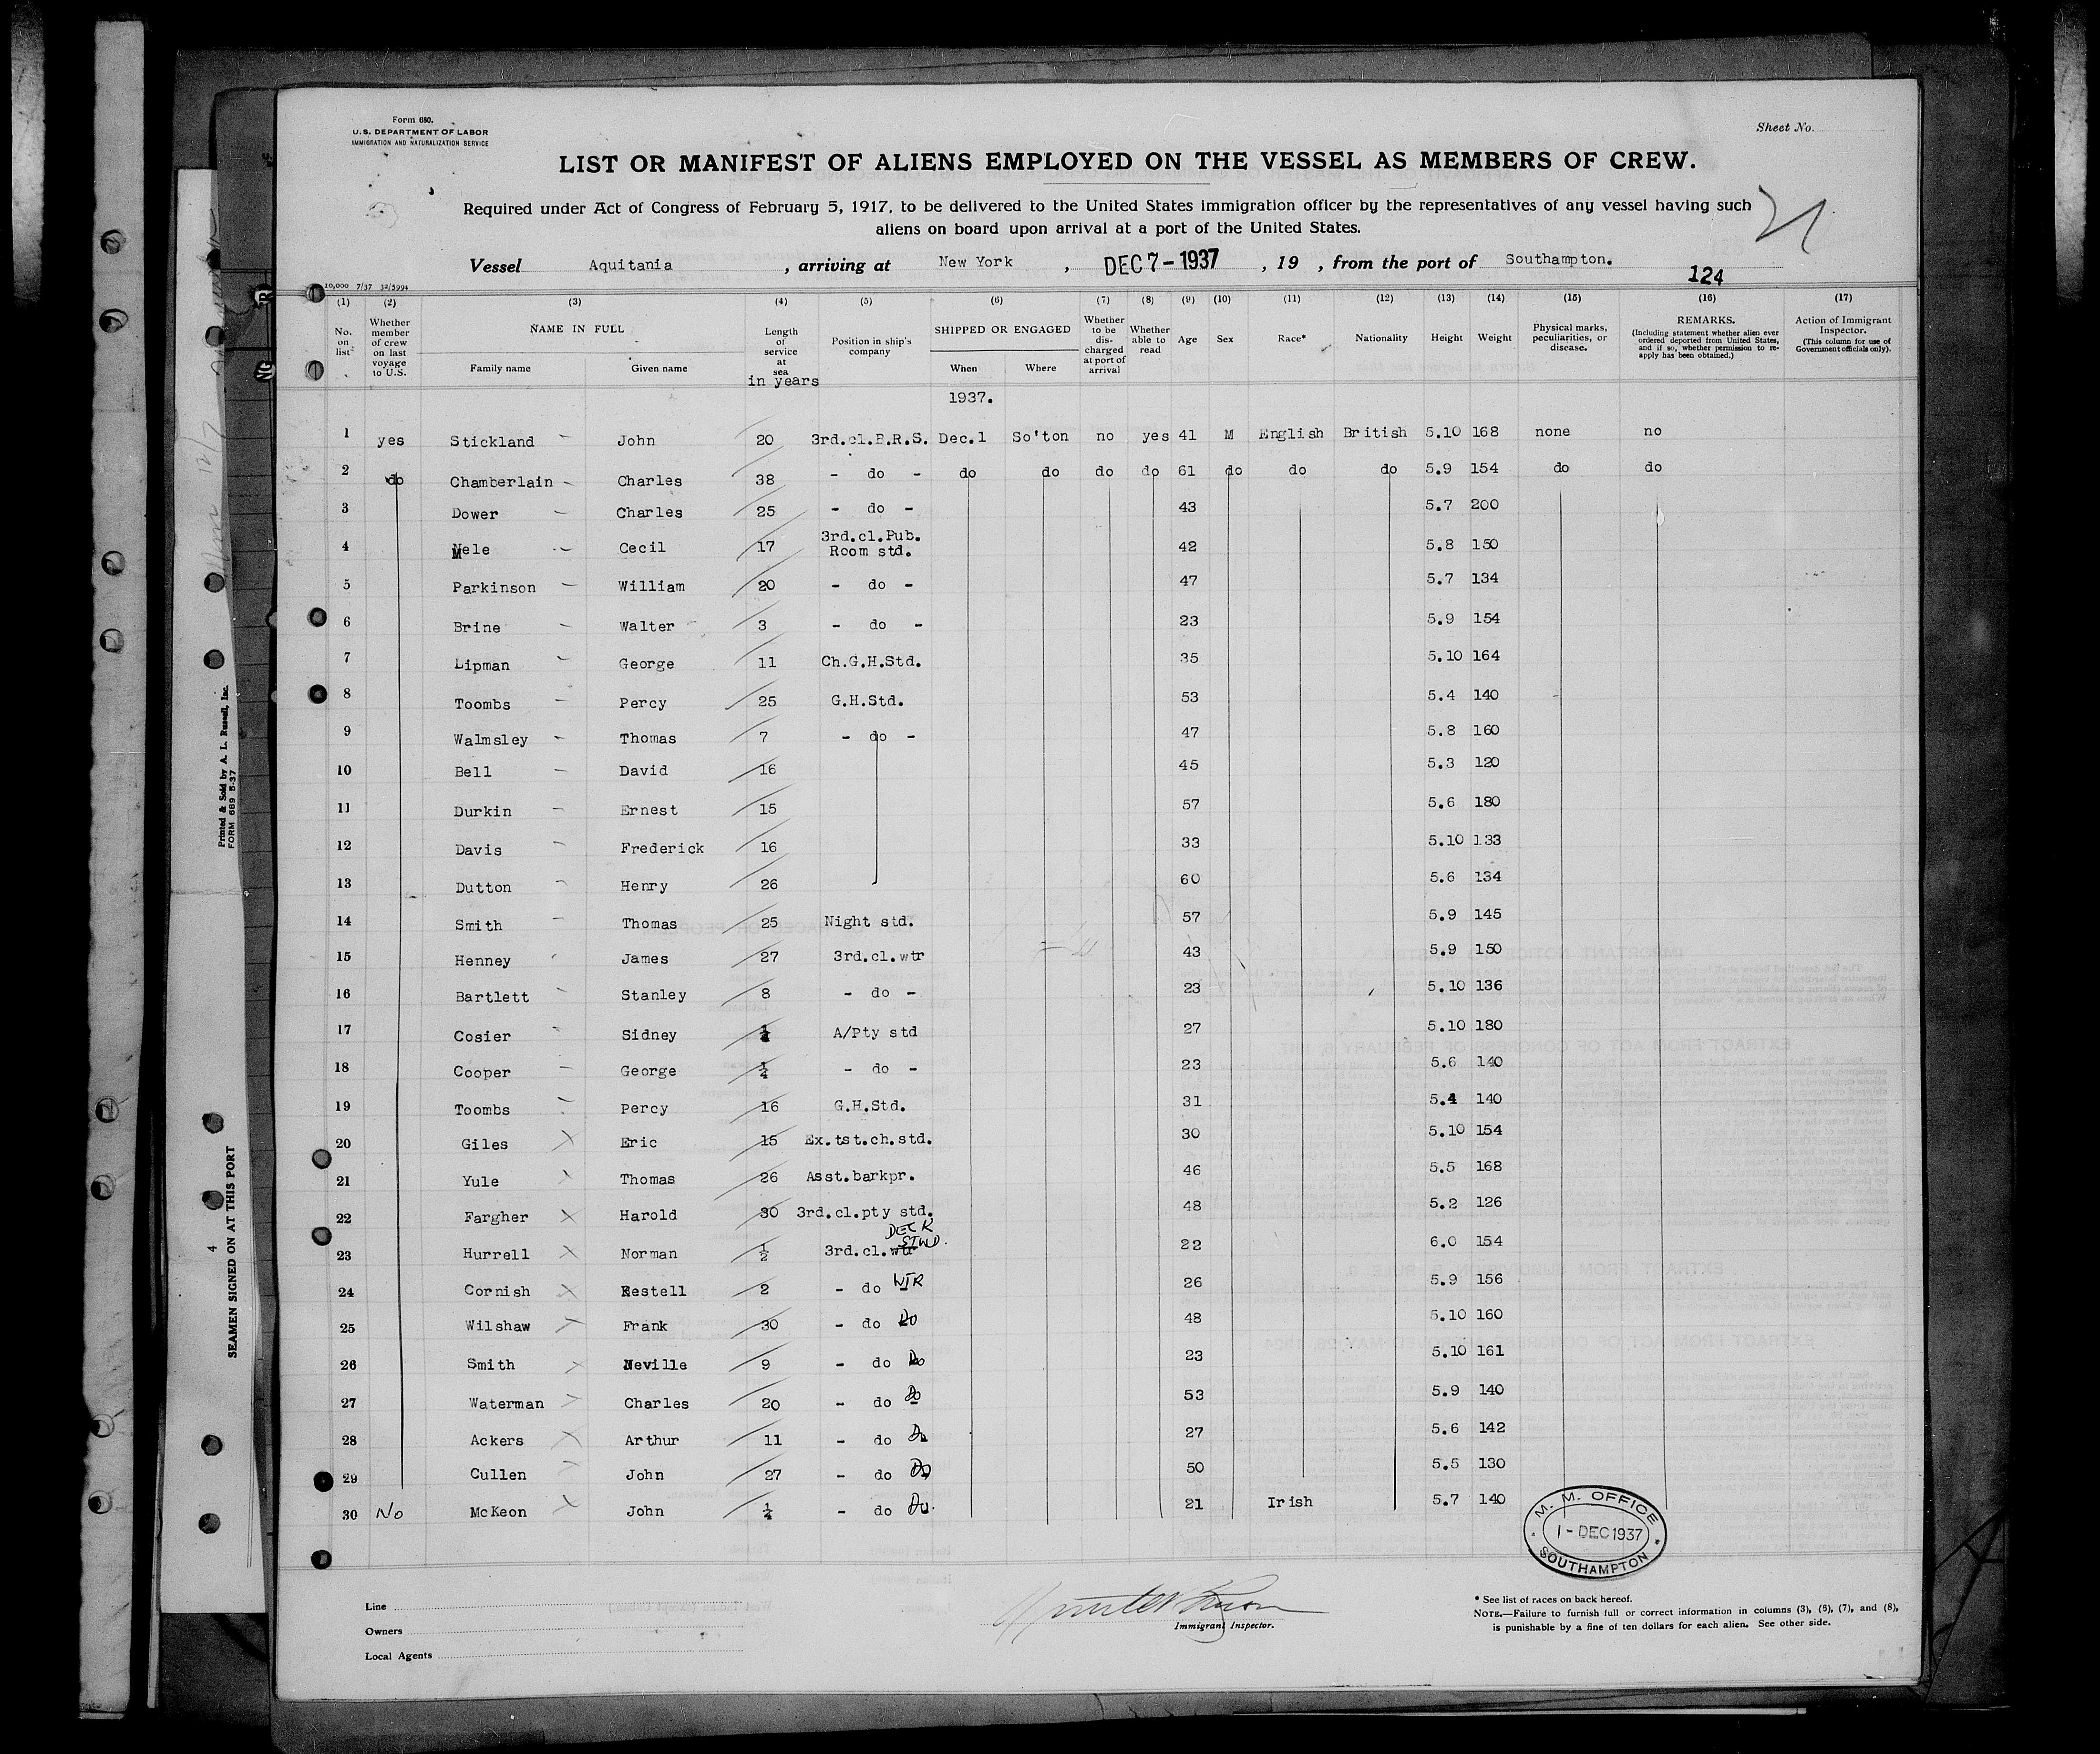 Form 680.
U.S. DEPARTMENT OF LABOR
IMMIGRATION AND NATURALIZATION SERVICE
Sheet No.
LIST OR MANIFEST OF ALIENS EMPLOYED ON THE VESSEL AS MEMBERS OF CREW.
Required under Act of Congress of February 5, 1917, to be delivered to the United States immigration officer by the representatives of any vessel having such
aliens on board upon arrival at a port of the United States.
Vessel Aquitania , arriving at New York , DEC 7-1937 , 19 , from the port of Southampton.
124
10,000 7/37 32/5994
(1) (2) (3) (4) (5) (6) (7) (8) (9) (10) (11) (12) (13) (14) (15) (16) (17)
No. on list
Whether member of crew on last voyage to U.S.
NAME IN FULL
Family name Given name
Length of service at sea
in years
Position in ship's company
SHIPPED OR ENGAGED
When Where
Whether to be discharged at port of arrival
Whether able to read
Age Sex Race* Nationality Height Weight
Physical marks, peculiarities, or disease.
REMARKS.
(Including statement whether alien ever ordered deported from United States, and if so, whether permission to re-apply has been obtained.)
Action of Immigrant Inspector.
(This column for use of Government officials only).
1937.
1 yes Stickland John 20 3rd.cl.P.R.S. Dec.1 So'ton no yes 41 M English British 5.10 168 none no
2 do Chamberlain Charles 38 - do - do do do do 61 do do do 5.9 154 do do
3 Dower Charles 25 - do - 43 5.7 200
4 Mele Cecil 17 3rd.cl.Pub. Room std. 42 5.8 150
5 Parkinson William 20 - do - 47 5.7 134
6 Brine Walter 3 - do - 23 5.9 154
7 Lipman George 11 Ch.G.H.Std. 35 5.10 164
8 Toombs Percy 25 G.H.Std. 53 5.4 140
9 Walmsley Thomas 7 - do - 47 5.8 160
10 Bell David 16 45 5.3 120
11 Durkin Ernest 15 57 5.6 180
12 Davis Frederick 16 33 5.10 133
13 Dutton Henry 26 60 5.6 134
14 Smith Thomas 25 Night std. 57 5.9 145
15 Henney James 27 3rd.cl.wtr 43 5.9 150
16 Bartlett Stanley 8 - do - 23 5.10 136
17 Cosier Sidney A/Pty std 27 5.10 180
18 Cooper George ¼ - do - 23 5.6 140
19 Toombs Percy 16 G.H.Std. 31 5.4 140
20 Giles Eric 15 Ex.tst.ch.std. 30 5.10 154
21 Yule Thomas 26 Asst.barkpr. 46 5.5 168
22 Fargher Harold 30 3rd.cl.pty std. 48 5.2 126
23 Hurrell Norman ½ 3rd.cl.wtr DECK STWD. 22 6.0 154
24 Cornish Restell 2 - do WTR 26 5.9 156
25 Wilshaw Frank 30 - do Do 48 5.10 160
26 Smith Neville 9 - do Do 23 5.10 161
27 Waterman Charles 20 - do Do 53 5.9 140
28 Ackers Arthur 11 - do Do 27 5.6 142
29 Cullen John 27 - do Do 50 5.5 130
30 No McKeon John ¼ - do Do. 21 Irish 5.7 140
M. M. OFFICE
1-DEC 1937
SOUTHAMPTON
Line
Owners
Local Agents
Immigrant Inspector.
* See list of races on back hereof.
NOTE.—Failure to furnish full or correct information in columns (3), (5), (7), and (8),
is punishable by a fine of ten dollars for each alien. See other side.
Printed & Sold by A. L. Russell, Inc.
FORM 689 5-37
4
SEAMEN SIGNED ON AT THIS PORT